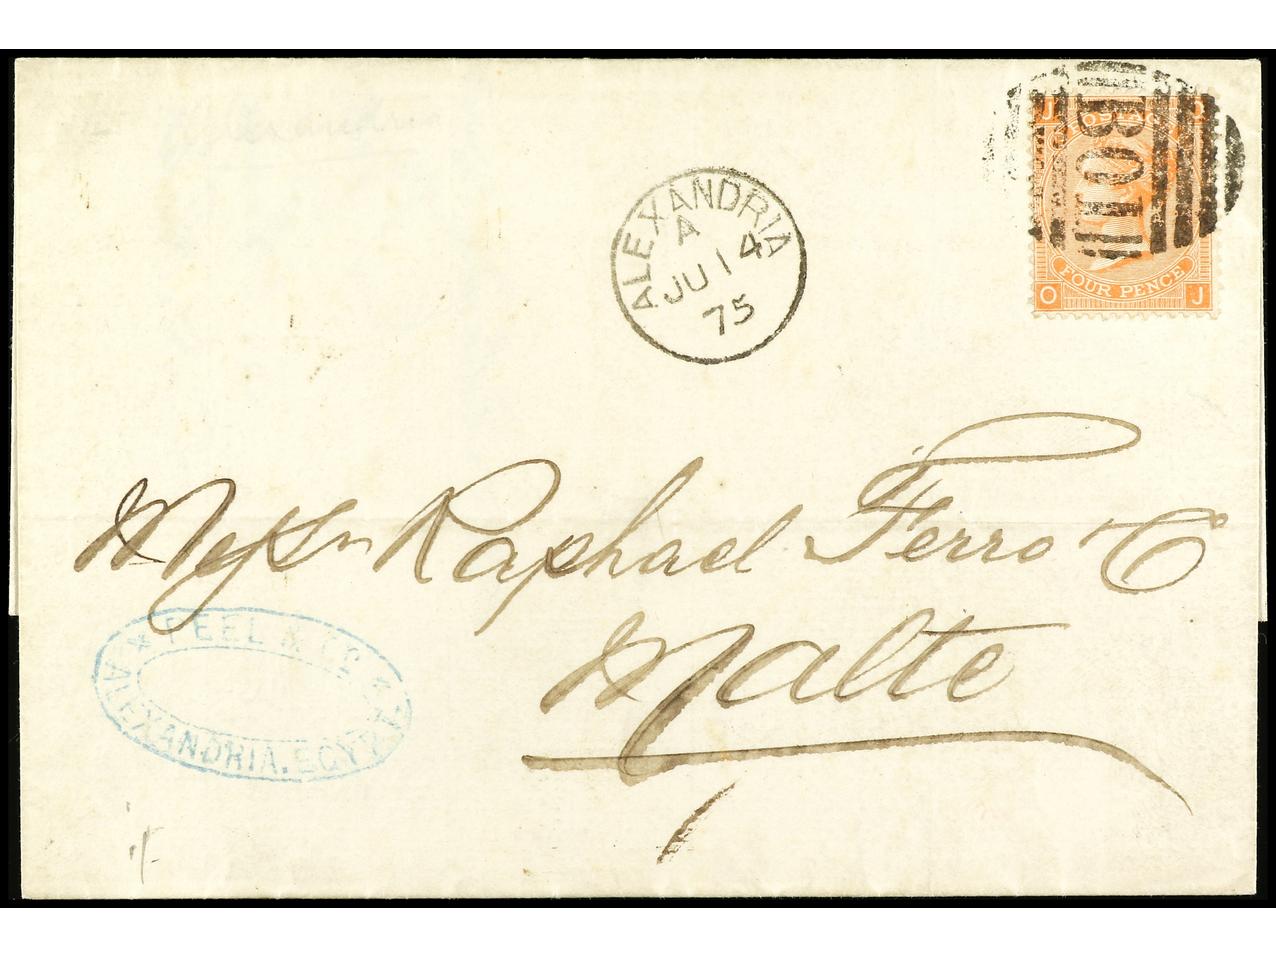 J O
POSTAGE
B01
FOUR PENCE
O J
ALEXANDRIA
A
JU 14
75
Raphael Ferro & C
Malte
* PEEL & Co *
ALEXANDRIA. EGYPT.